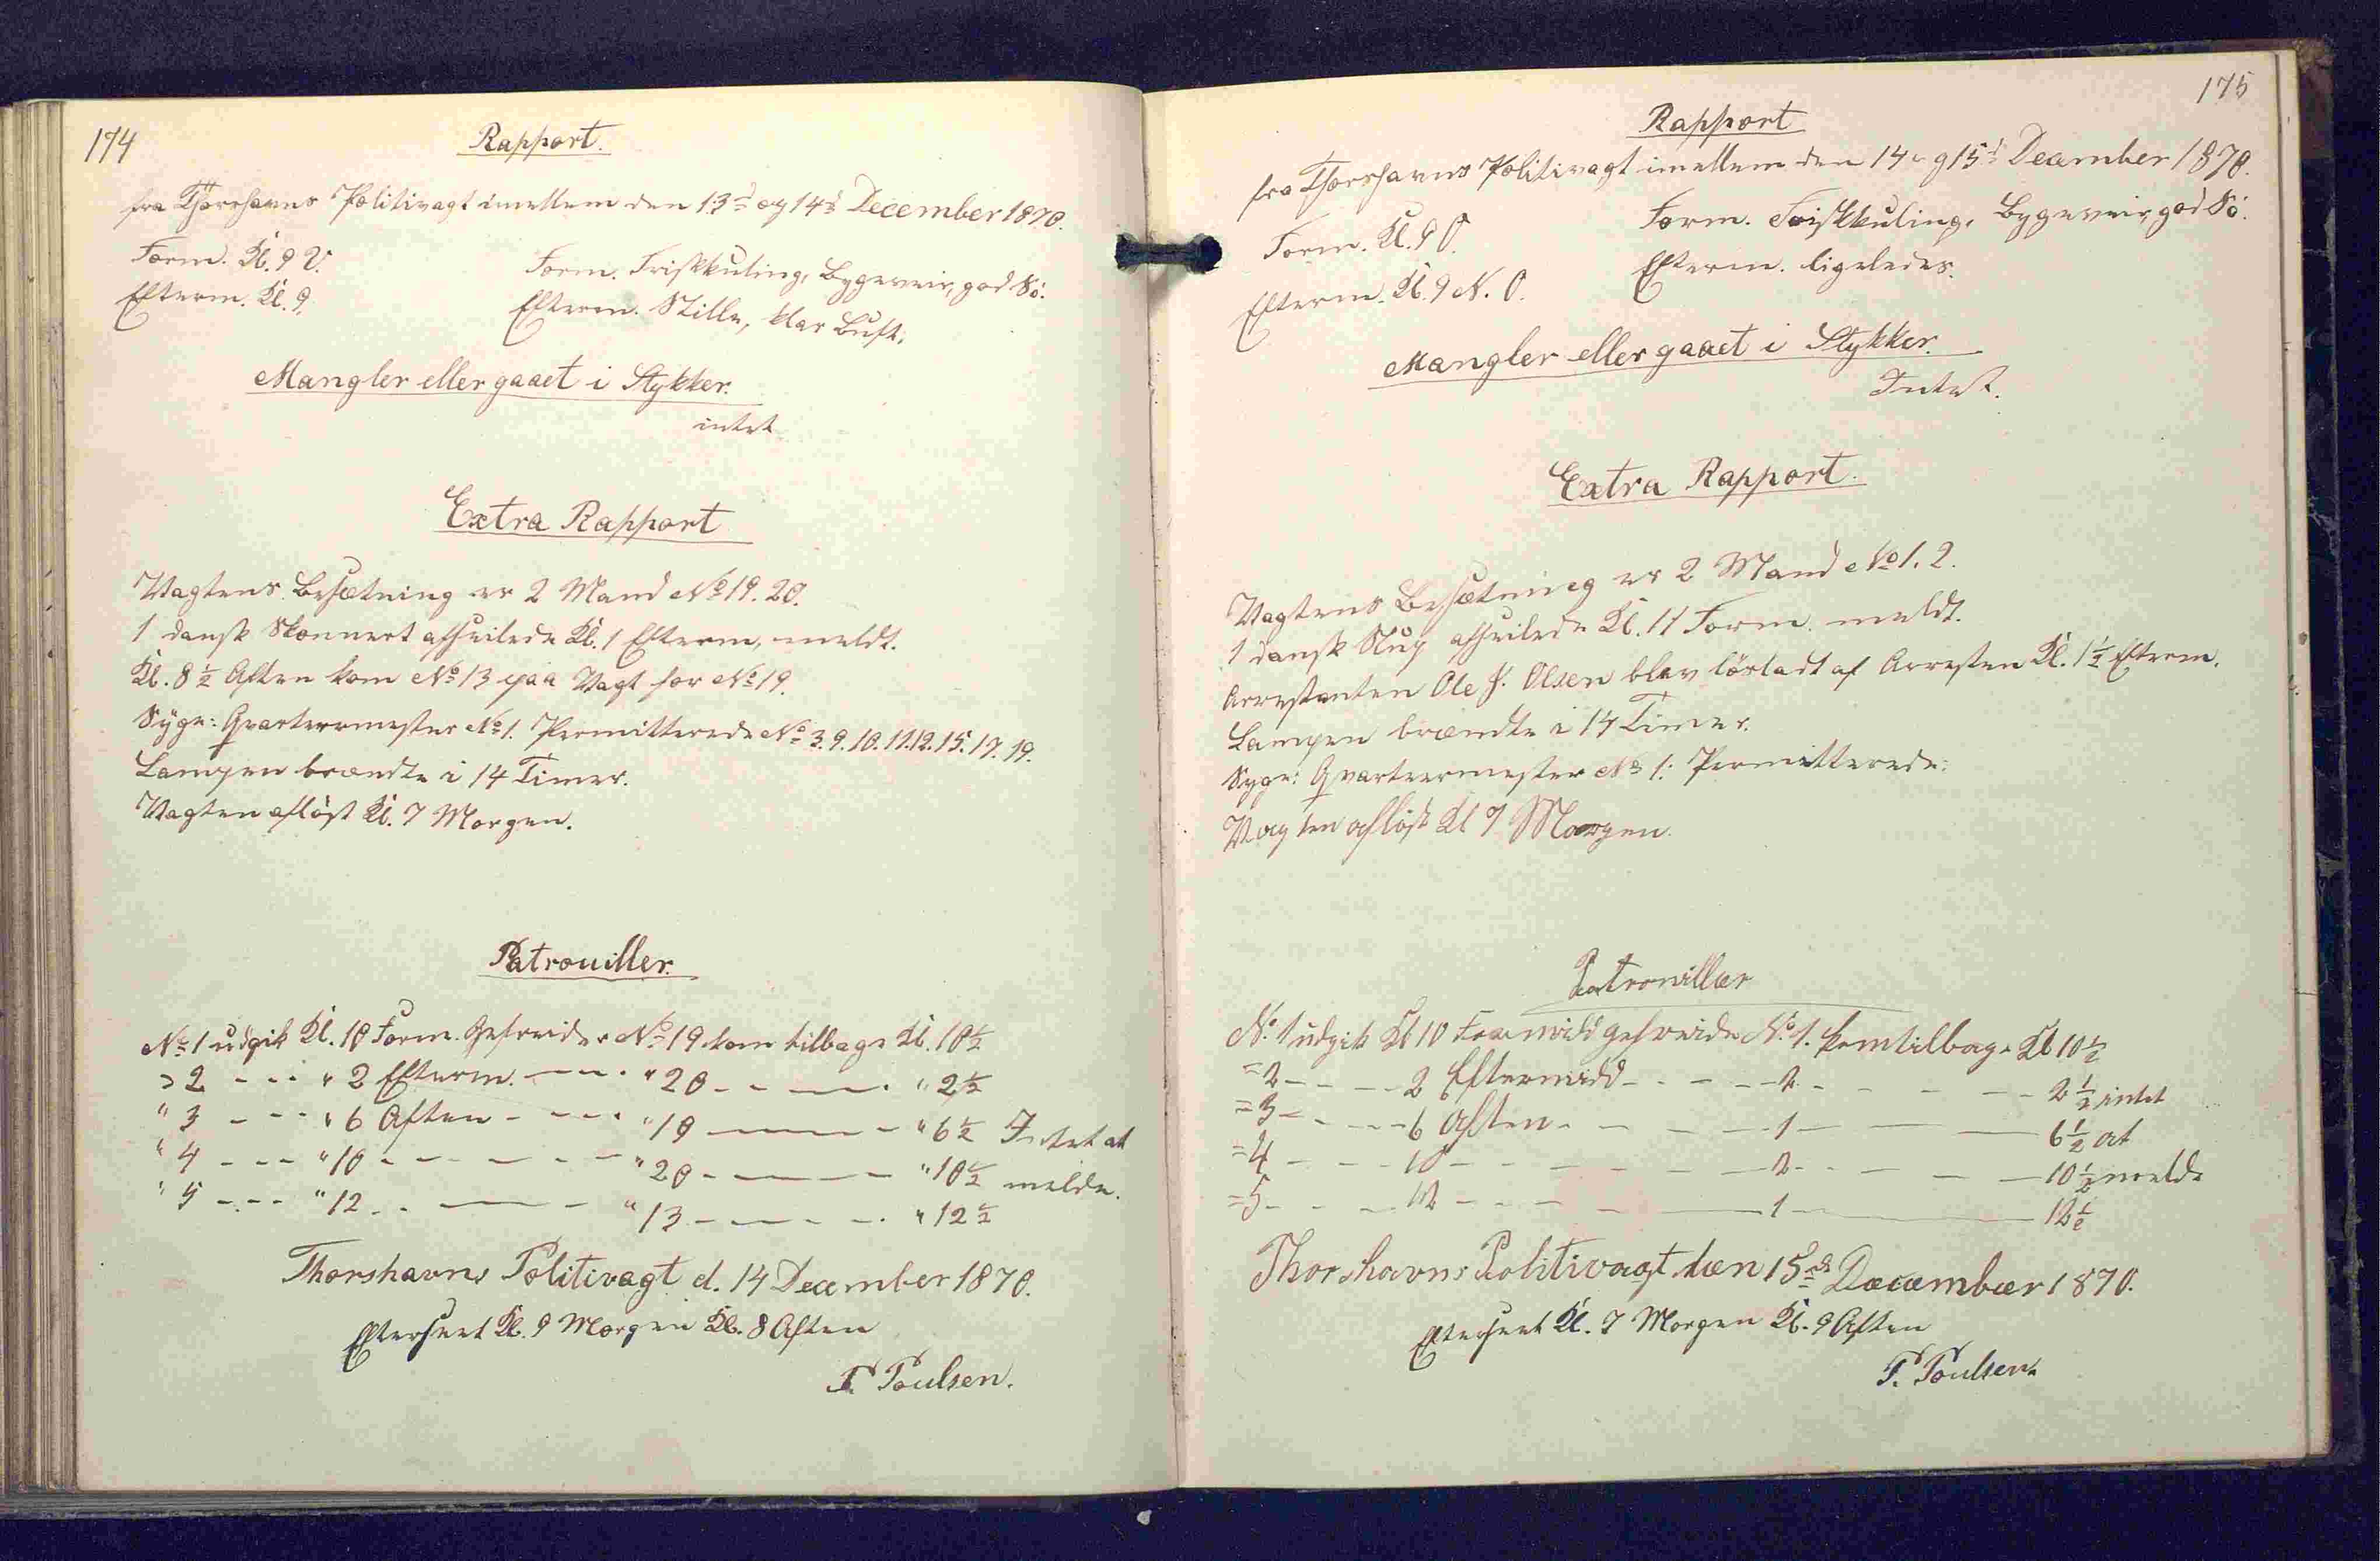 174
Rapport.
fra Thorshavns Politivagt imellem den 13d og 14d December 1870.
Form. Kl. 9 V.
Form. Friskkuling, Bygeveir, god Sö.
Efterm. Kl. 9.
Efterm. Stille, klar Luft.
Mangler eller gaaet i Stykker.
intet
Extra Rapport
Vagtens Besætning er 2 Mand No 19. 20.
1 dansk Skonnert afseilede Kl. 1 Efterm, meldt.
Kl. 8 1/2 Aften kom No 13 paa Vagt for No 19.
Syge: Qvarteermester No 1. Permitterede No 3. 9. 10. 11. 12. 15. 17. 19.
Lampen brændte i 14 Timer.
Vagten aflöst Kl. 7 Morgen.
Patrouiller.
No 1 udgik Kl. 10 Form. Gefreider No 19 kom tilbage Kl. 10 1/2
" 2 - - - " 2 Efterm. - - - " 20 - - - - " 2 1/2
" 3 - - - " 6 Aften - - - - " 19 - - - - " 6 1/2 Intet at
" 4 - - - " 10 - - - - - - " 20 - - - - " 10 1/2 melde.
" 5 - - - " 12 - - - - - " 13 - - - - " 12 1/2
Thorshavns Politivagt d. 14 December 1870.
Efterseet Kl. 9 Morgen Kl. 8 Aften
P. Poulsen.
175
Rapport
fra Thorshavns Politivagt imellem den 14 og 15d December 1870.
Form. Kl. 9 O.
Form. Friskkuling, Bygeveir, god Sö.
Efterm. Kl. 9 N. O.
Efterm. ligeledes.
Mangler eller gaaet i Stykker.
Intet.
Extra Rapport.
Vagtens Besætning er 2 Mand No 1. 2.
1 dansk Slup afseilede Kl. 11 Form. meldt.
Arrestanten Ole J. Olsen blev lösladt af Arresten Kl. 1 1/2 Efterm.
Lampen brændte i 14 Timer.
Syge: Qvarteermester No 1. Permitterede:
Vagten aflöst Kl 7 Morgen
Patrouiller
No. 1 udgik Kl 10 Formidd gefreide No. 1. kom tilbage Kl 10 1/2
= 2 - - - - 2 Eftermidd - - - - 2 - - - - 2 1/2 intet
= 3 - - - - 6 Aften - - - - 1 - - - 6 1/2 at
= 4 - - - 10 - - - - - - 2 - - - - 10 1/2 melde
= 5 - - - 12 - - - - - 1 - - - 12 1/2
Thorshavns Politivagt den 15de December 1870.
Efterseet Kl. 7 Morgen Kl. 9 Aften
P. Poulsen.